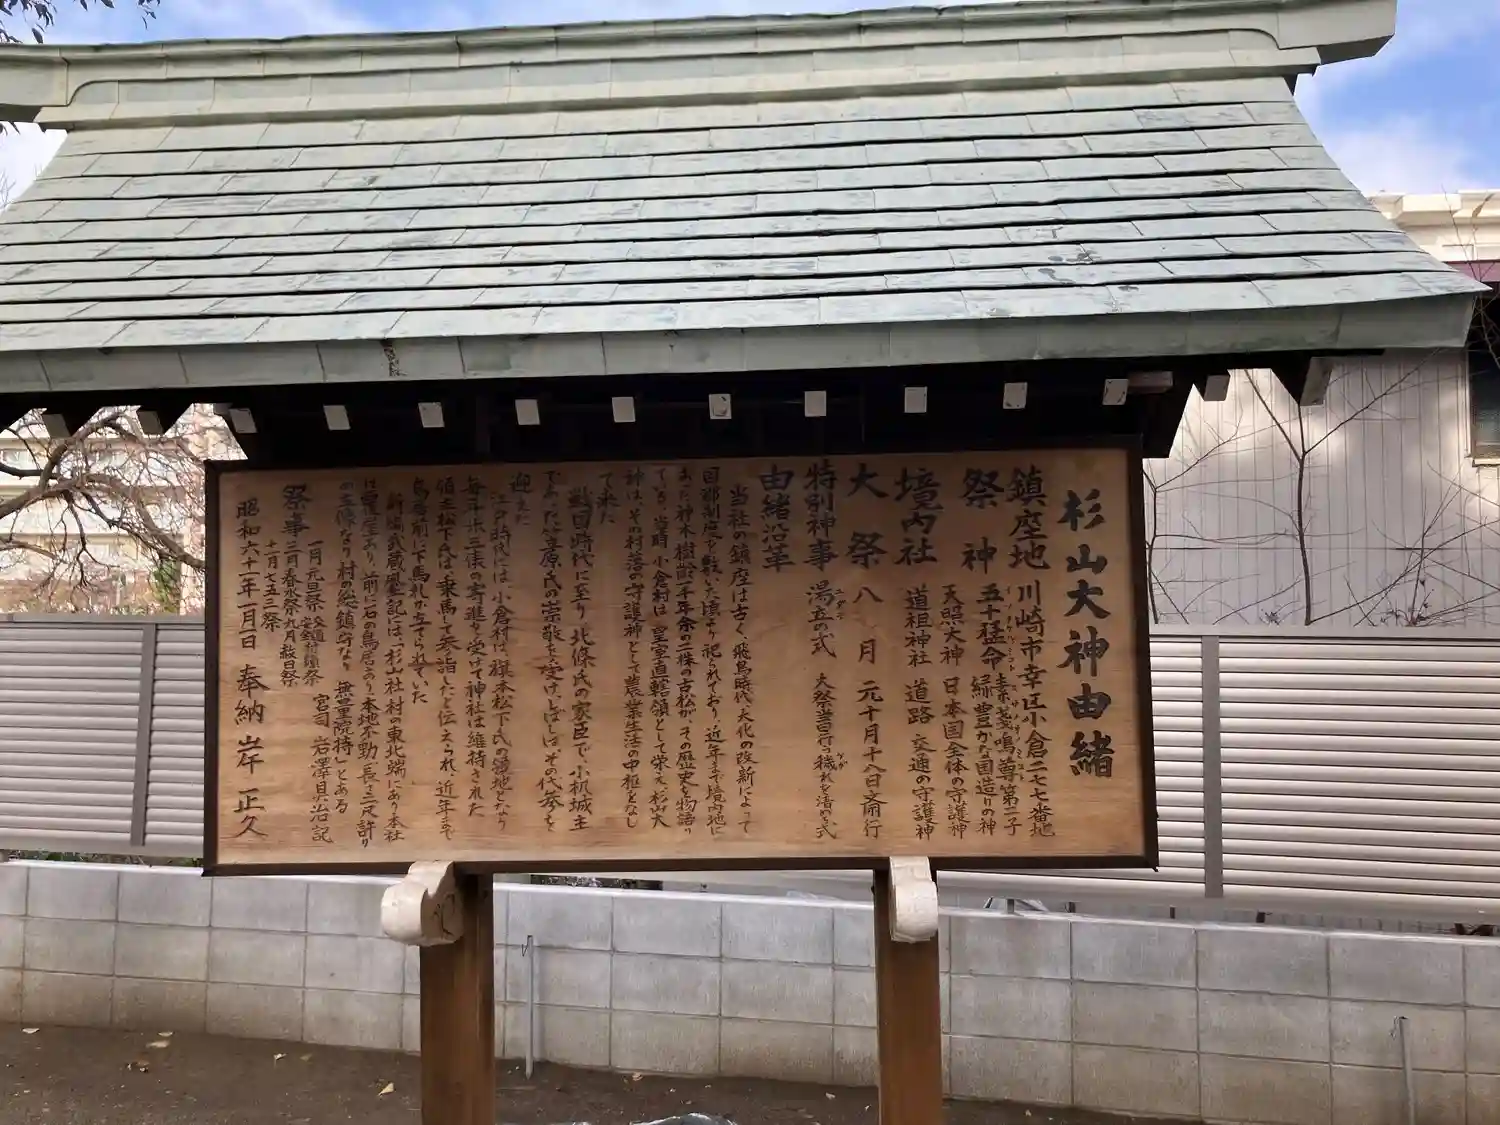 杉山大神由緒
鎮座地 川崎市幸区小倉二七七番地
祭神 五十猛命 素戔嗚尊第二子
イソタケルノミコト スサノオノミコト
緑豊かな国造りの神
天照大神 日本国全体の守護神
境内社 道祖神社 道路 交通の守護神
大祭 八月 元十月十八日斎行
特別神事 湯立の式 大祭当日行う穢れを清める式
由緒沿革
当社の鎮座は古く、飛鳥時代、大化の改新によって
国郡制度を敷いた頃より祀られており、近年まで境内地に
あった神木樹齢一千年余の二株の古松が、その歴史を物語っ
ている。当時、小倉村は、皇室直轄領として栄え、杉山大
神は、その村落の守護神として農業生活の中枢をなし
て来た
戦国時代に至り、北條氏の家臣で、小机城主
であった笠原氏の崇敬を受け、しばしば、その代参を
迎えた
江戸時代には、小倉村は、旗本松下氏の領地となり
毎年米三俵の寄進を受けて神社は維持された
領主松下氏は、乗馬して参詣したと伝えられ、近年まで
鳥居前に下馬札が立てられていた
新編武蔵風土記には、「杉山社村の東北端にあり本社
は覆屋あり、前に石の鳥居あり本地不動(長さ三尺許り
の立像なり村の総鎮守なり 無量院持」とある
祭事 一月元旦祭
三月春水祭九月敬日祭
十一月七五三祭
宮司 岩澤貝治記
昭和六十一年一月一日 奉納 岸正久